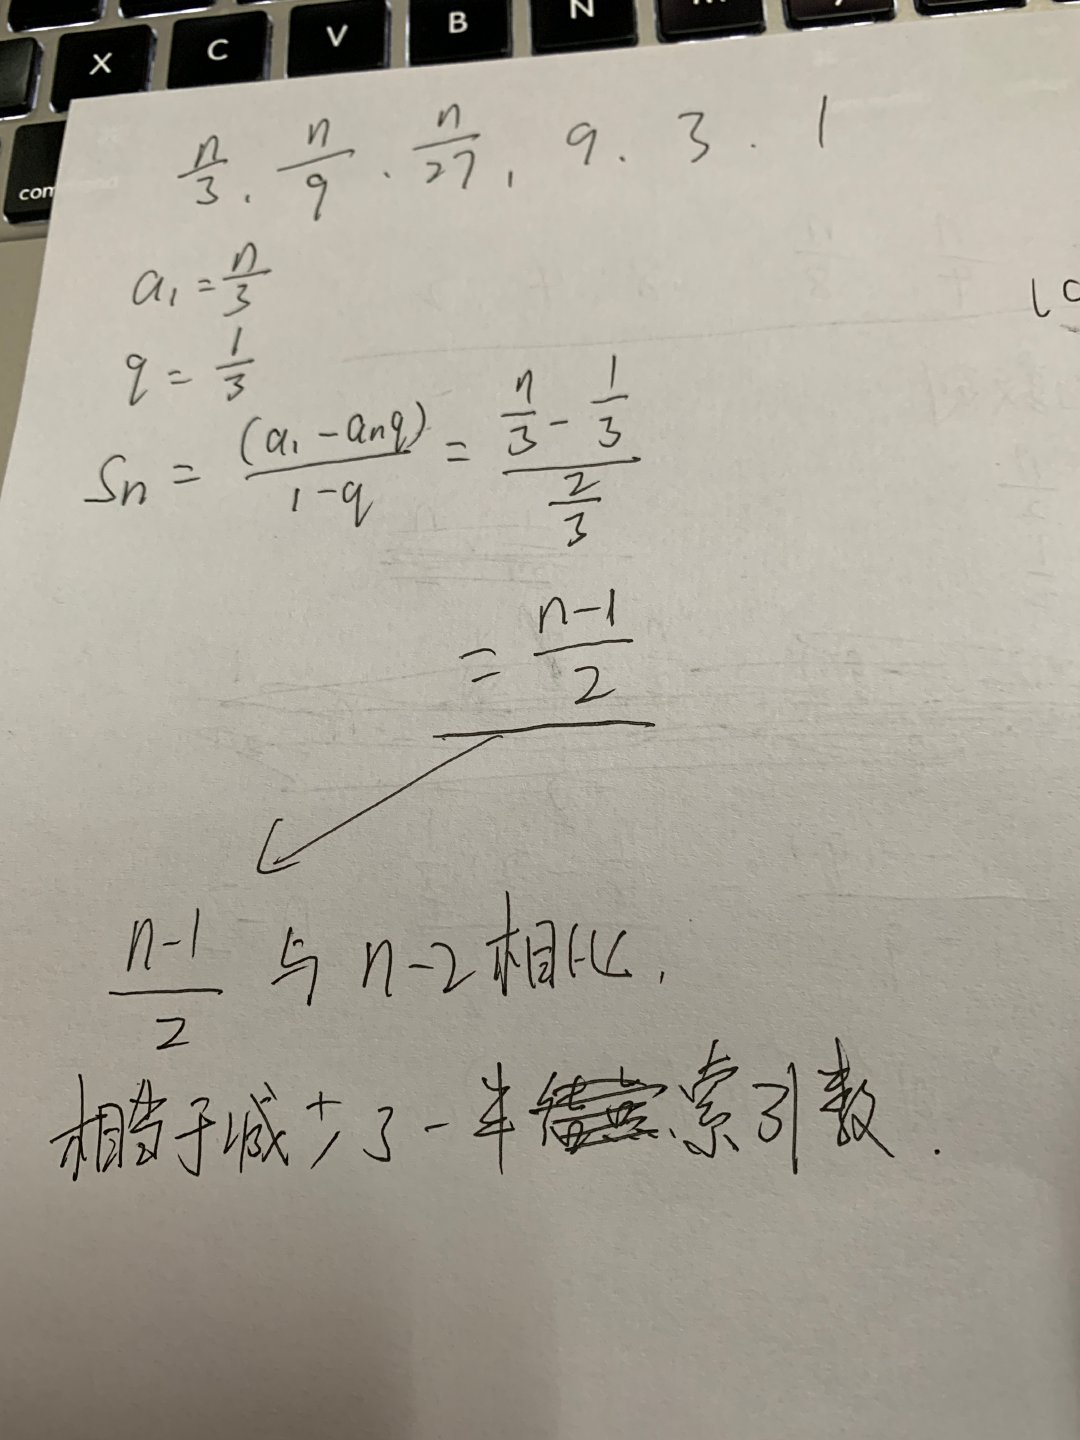 X C V B N
com
n/3 . n/9 . n/27 , 9 . 3 . 1
a₁ = n/3
q = 1/3
Sn = (a₁ - anq) / 1-q = (n/3 - 1/3) / (2/3)
= n-1/2
n-1/2 与 n-2 相比,
相当于减少了一半 索引数.